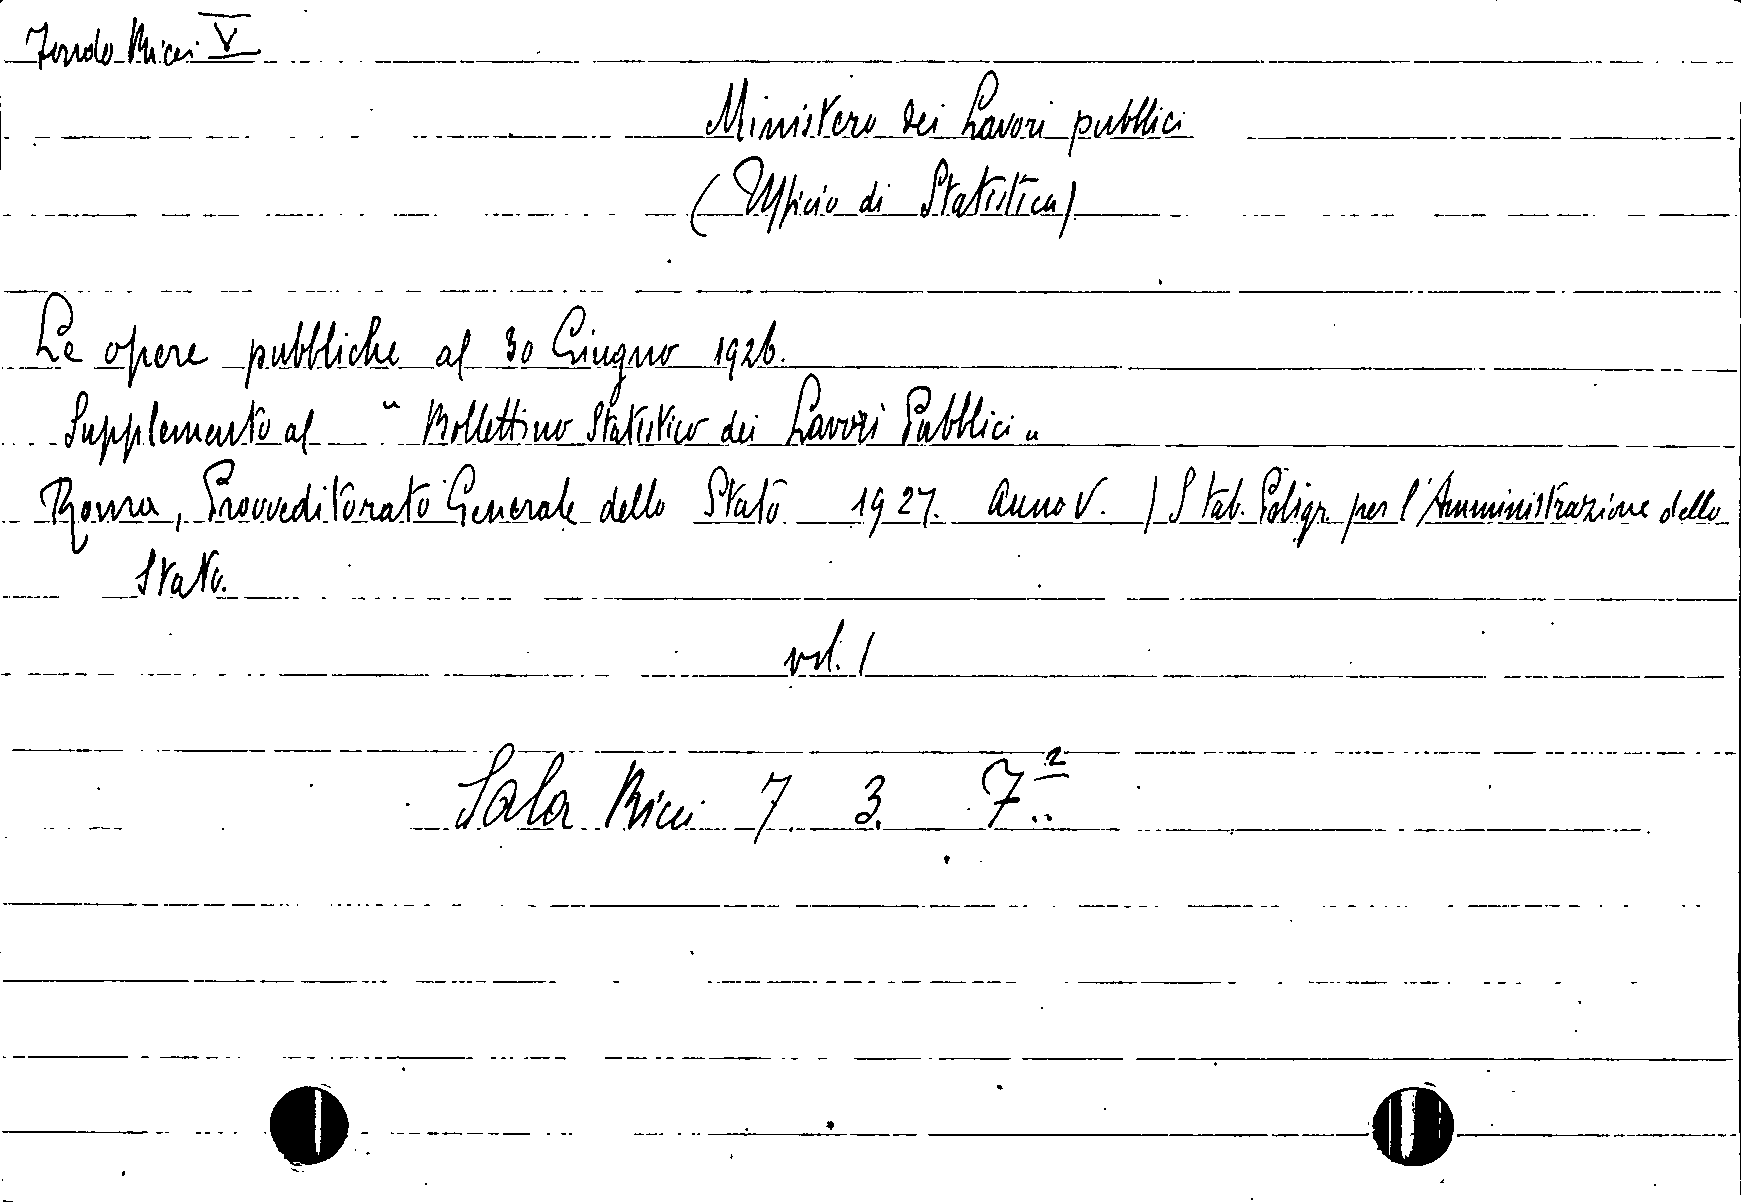 Fondo Ricci V
Ministero dei Lavori pubblici
(Ufficio di Statistica)
Le opere pubbliche al 30 Giugno 1926.
Supplemento al "Bollettino Statistico dei Lavori Pubblici"
Roma, Provveditorato Generale dello Stato 1927. Anno V. / Stab. Poligr. per l'Amministrazione dello
Stato.
vol. 1
Sala Ricci 7. 3. 7²